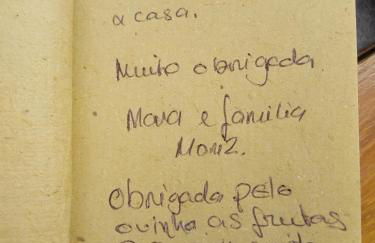 a casa.
Muito obrigada
Mara e família
Moniz.
Obrigada pelo
ovinho as frutas